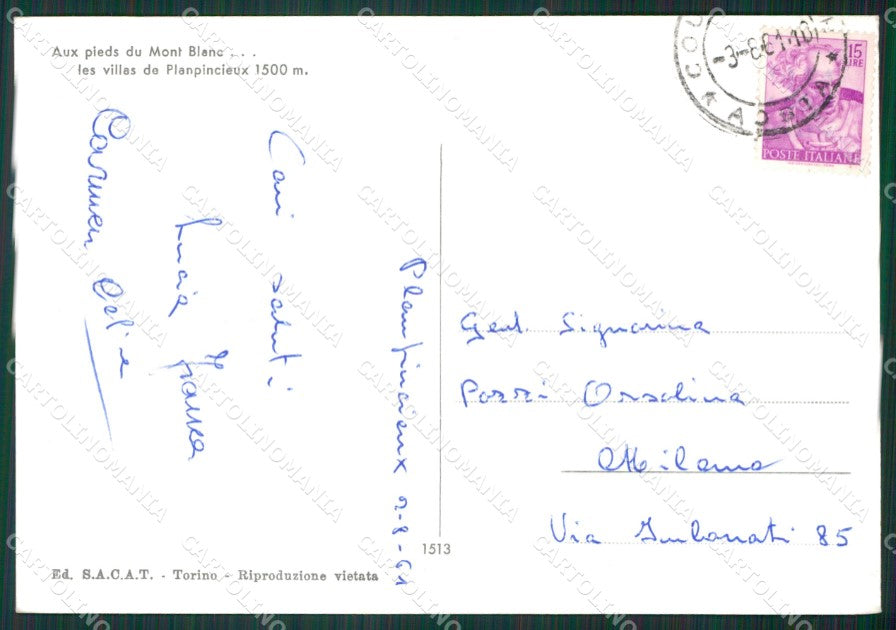 Aux pieds du Mont Blanc . . .
les villas de Planpincieux 1500 m.
-3-8 61-10
AOSTA
15
LIRE
POSTE ITALIANE
Planpincieux 2-8-61
Cari saluti
Lucia Franca
Carmen
Gent. Signorina
Pozzi Orsolina
Milano
Via Imbonati 85
1513
Ed. S.A.C.A.T. - Torino - Riproduzione vietata
CARTOLINOMANIA